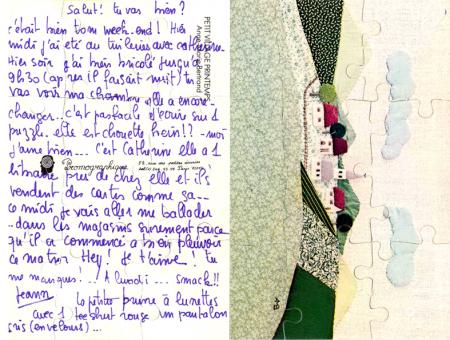 Salut! tu vas bien?
c'était bien ton week-end! Hier
midi j'ai été au tuileries avec catherine.
Hier soir j'ai bien bricolé jusqu'à
9h30 (après il faisait nuit) tu
vas voir ma chambre elle a encore
changer... c'est pas facile d'écrire sur 1
puzzle. elle est chouette hein!? - moi
j'aime bien... c'est Catherine elle a 1
librairie près de chez elle et ils
vendent des cartes comme sa...
ce midi je vais aller me ballader
..dans les magasins sûrement parce
qu'il a commencé a bien pleuvoir
ce matin. Hey! Je t'aime! tu
me manques!.. A lundi... smack!!
la petite brune à lunettes
avec 1 tee shirt rouge un pantalon
gris (en velours)...
PETIT VILLAGE PRINTEMPS
Bertrand
Promographique
AB